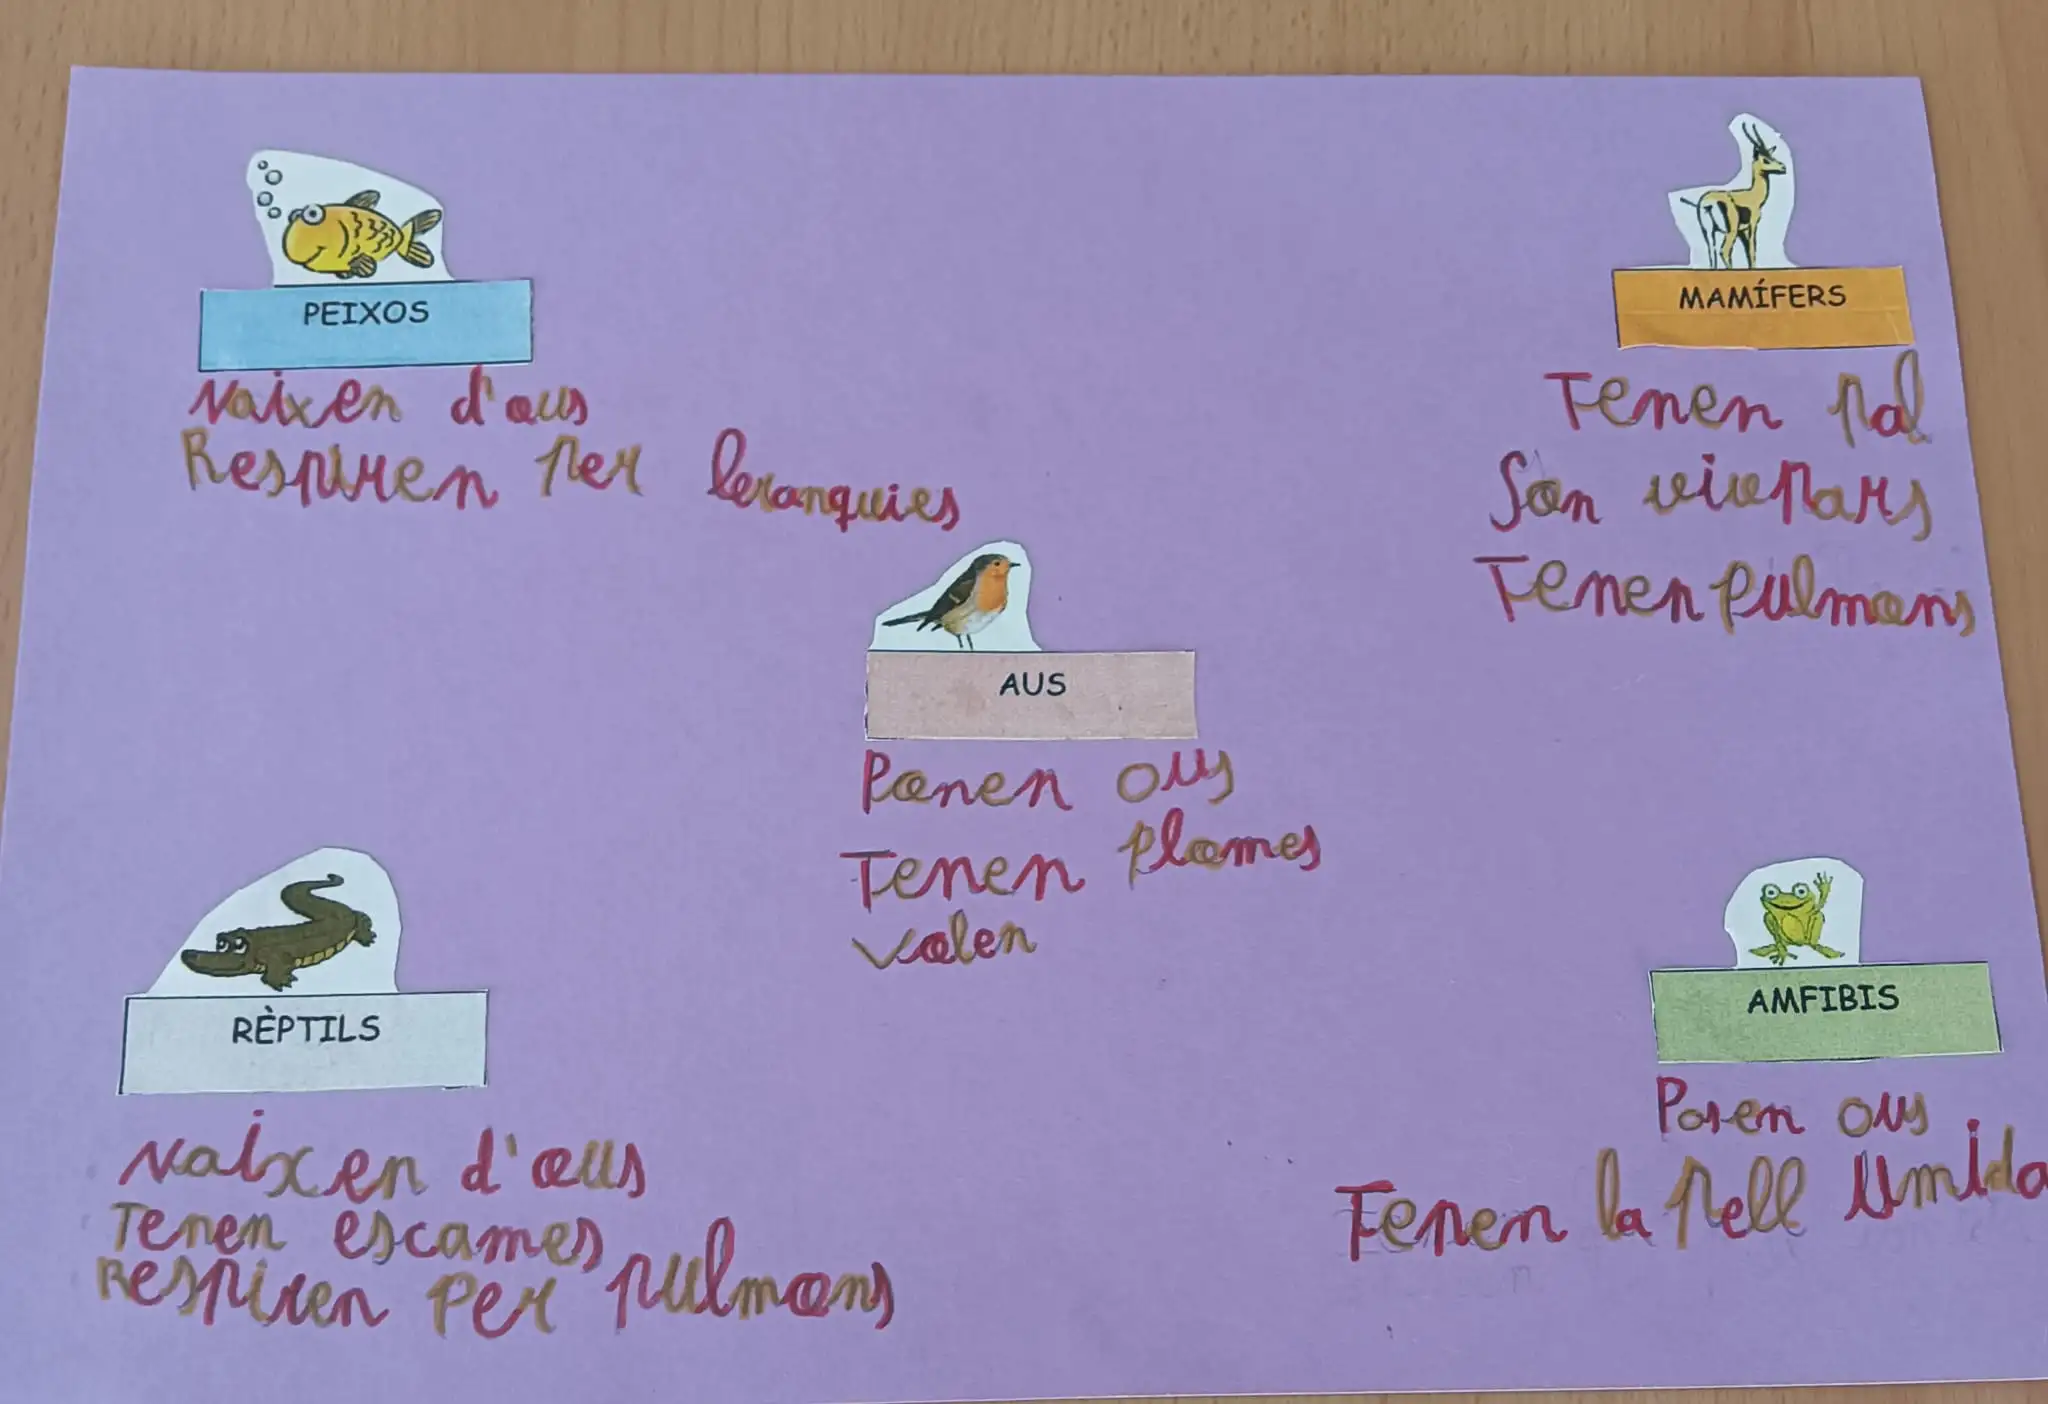 PEIXOS
Naixen d'ous
Respiren per branquies
MAMÍFERS
Tenen pal
Son vivpars
Tenen pulmons
AUS
Ponen ous
Tenen plomes
Volen
RÈPTILS
Naixen d'ous
Tenen escames
Respiren per pulmons
AMFIBIS
Posen ous
Tenen la pell umida